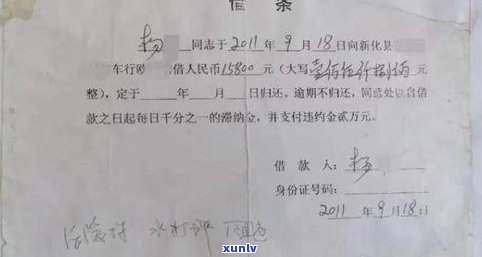 借 条
杨 同志于 2011 年 9 月 18 日向新化县
车行 借人民币 15800 元（大写 元
整），定于 年 月 日归还。逾期不归还，同意处以自借
款之日起每日千分之一的滞纳金，并支付违约金贰万元。
借 款 人：杨
身份证号码：
2011 年 9 月 18 日
xunlv